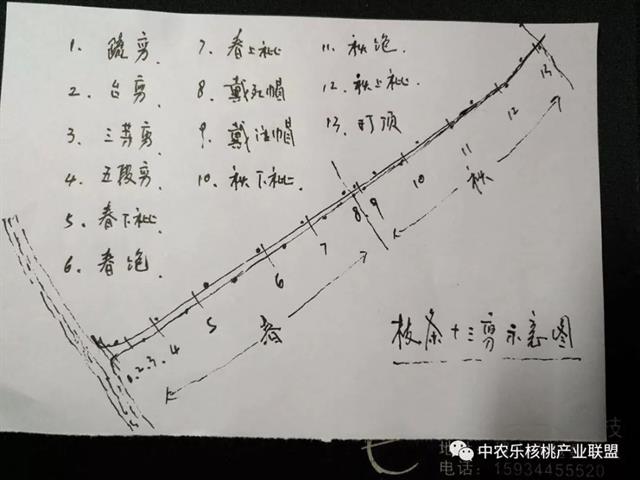 1. 疏剪
2. 台剪
3. 三芽剪
4. 五段剪
5. 春下秕
6. 春饱
7. 春上秕
8. 戴死帽
9. 戴活帽
10. 秋下秕
11. 秋饱
12. 秋上秕
13. 打顶
1.2.3.4
5
6
7
8.9
10
11
12
13
春
秋
枝条十三剪示意图
中农乐核桃产业联盟
电话：15934455520